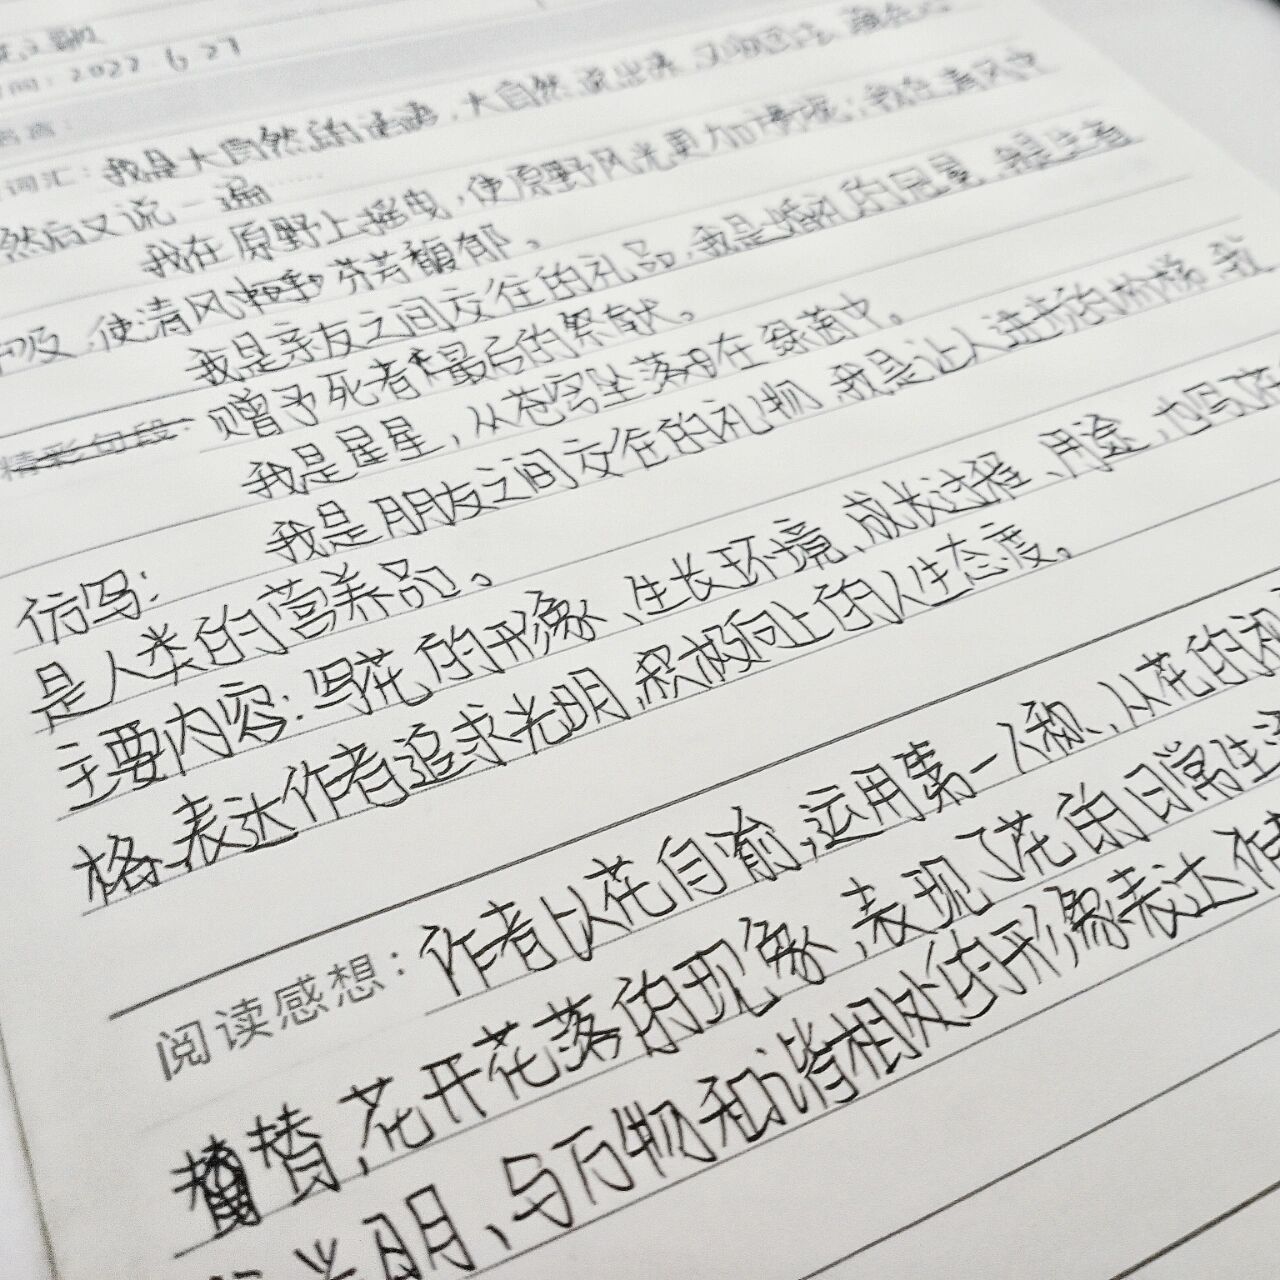 之歌
时间：2022 6 27
词汇：我是大自然的话语，大自然说出来
然后又说一遍……
我在原野上摇曳，使原野风光更加旖旎；我在清风中
呼吸，使清风 芬芳馥郁。
我是亲友之间交往的礼品，我是婚礼的冠冕，我是生者
赠予死者最后的祭献。
精彩句段：
我是星星，从苍穹坠落在绿茵中。
我是朋友之间交往的礼物，我是让人进步的阶梯，我
仿写：
是人类的营养品。
主要内容：写花的形象、生长环境、成长过程、用途，也写花
格，表达作者追求光明，积极向上的人生态度。
阅读感想：作者以花自喻，运用第一人称，从花的视
替，花开花落的现象，表现了花的日常生活
光明、与万物和谐相处的形象表达作者